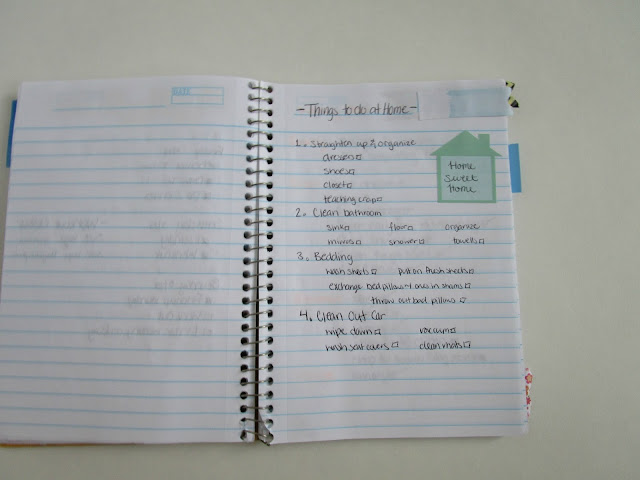 DATE
- Things to do at Home -
1. Straighten up & organize
dressers
shoes
closet
teaching crap
Home
Sweet
Home
2. Clean bathroom
sink floor organize
mirrors shower towells
3. Bedding
wash sheets put on fresh sheets
exchange bed pillows ones in shams
throw out bad pillows
4. Clean Out Car
wipe down vacuum
wash seat covers clean mats